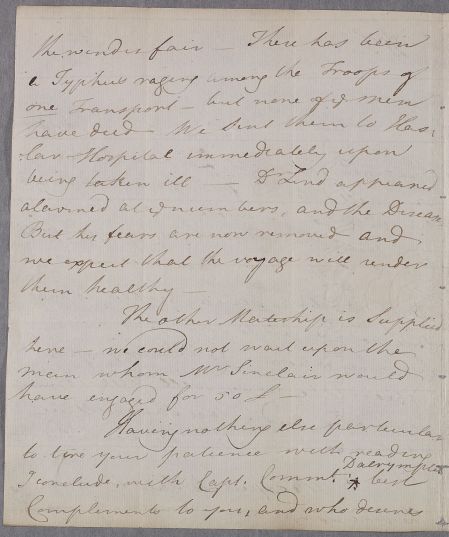 the wind is fair — There has been
a Typhus raging among the Troops of
one Transport — but none of ye men
have died We sent them to Has-
lar Hospital immediately upon
being taken ill — Dr Lind appeared
alarmed at ye numbers, and the Disease
But his fears are now removed and
we expect that the voyage will render
them healthy —
The other Mateship is Supplied
here — we could not wait upon the
man whom Mr Sinclair would
have engaged for 50£ —
Having nothing else particular
to tire your patience with reading
Dalrymples
I conclude, with Capt. Commt. best
Complements to you, and who desires